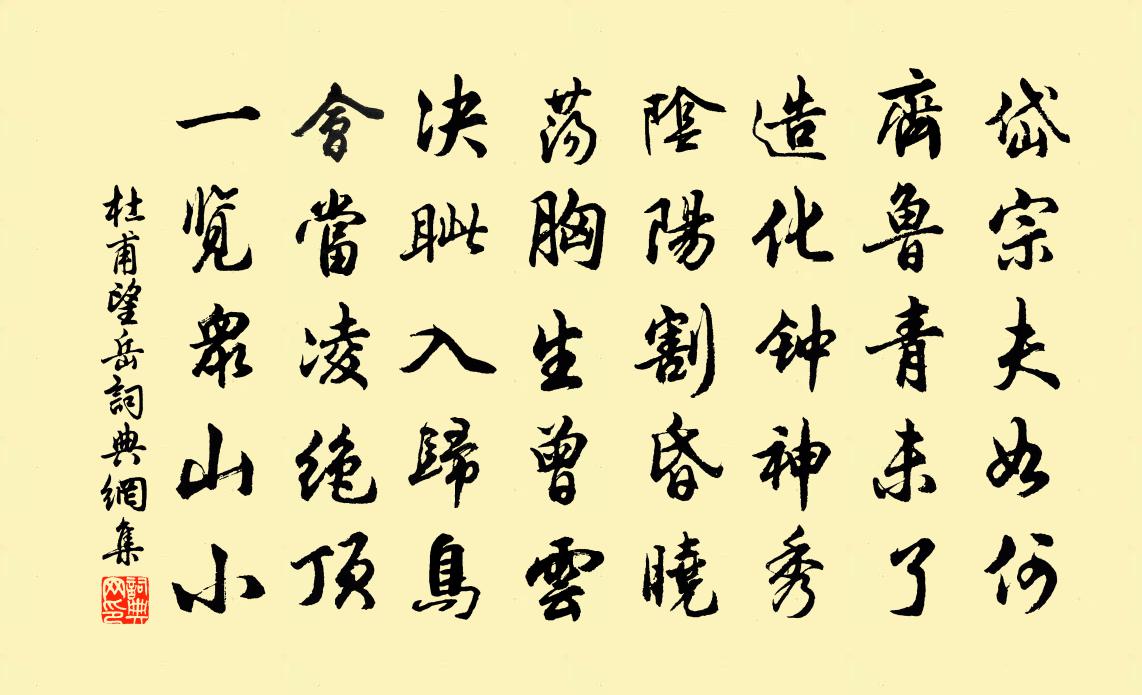 岱宗夫如何
齊魯青未了
造化钟神秀
陰陽割昏曉
荡胸生曾雲
決眦入歸鳥
會當凌绝頂
一览眾山小
杜甫望岳詞典網集
詞典网印